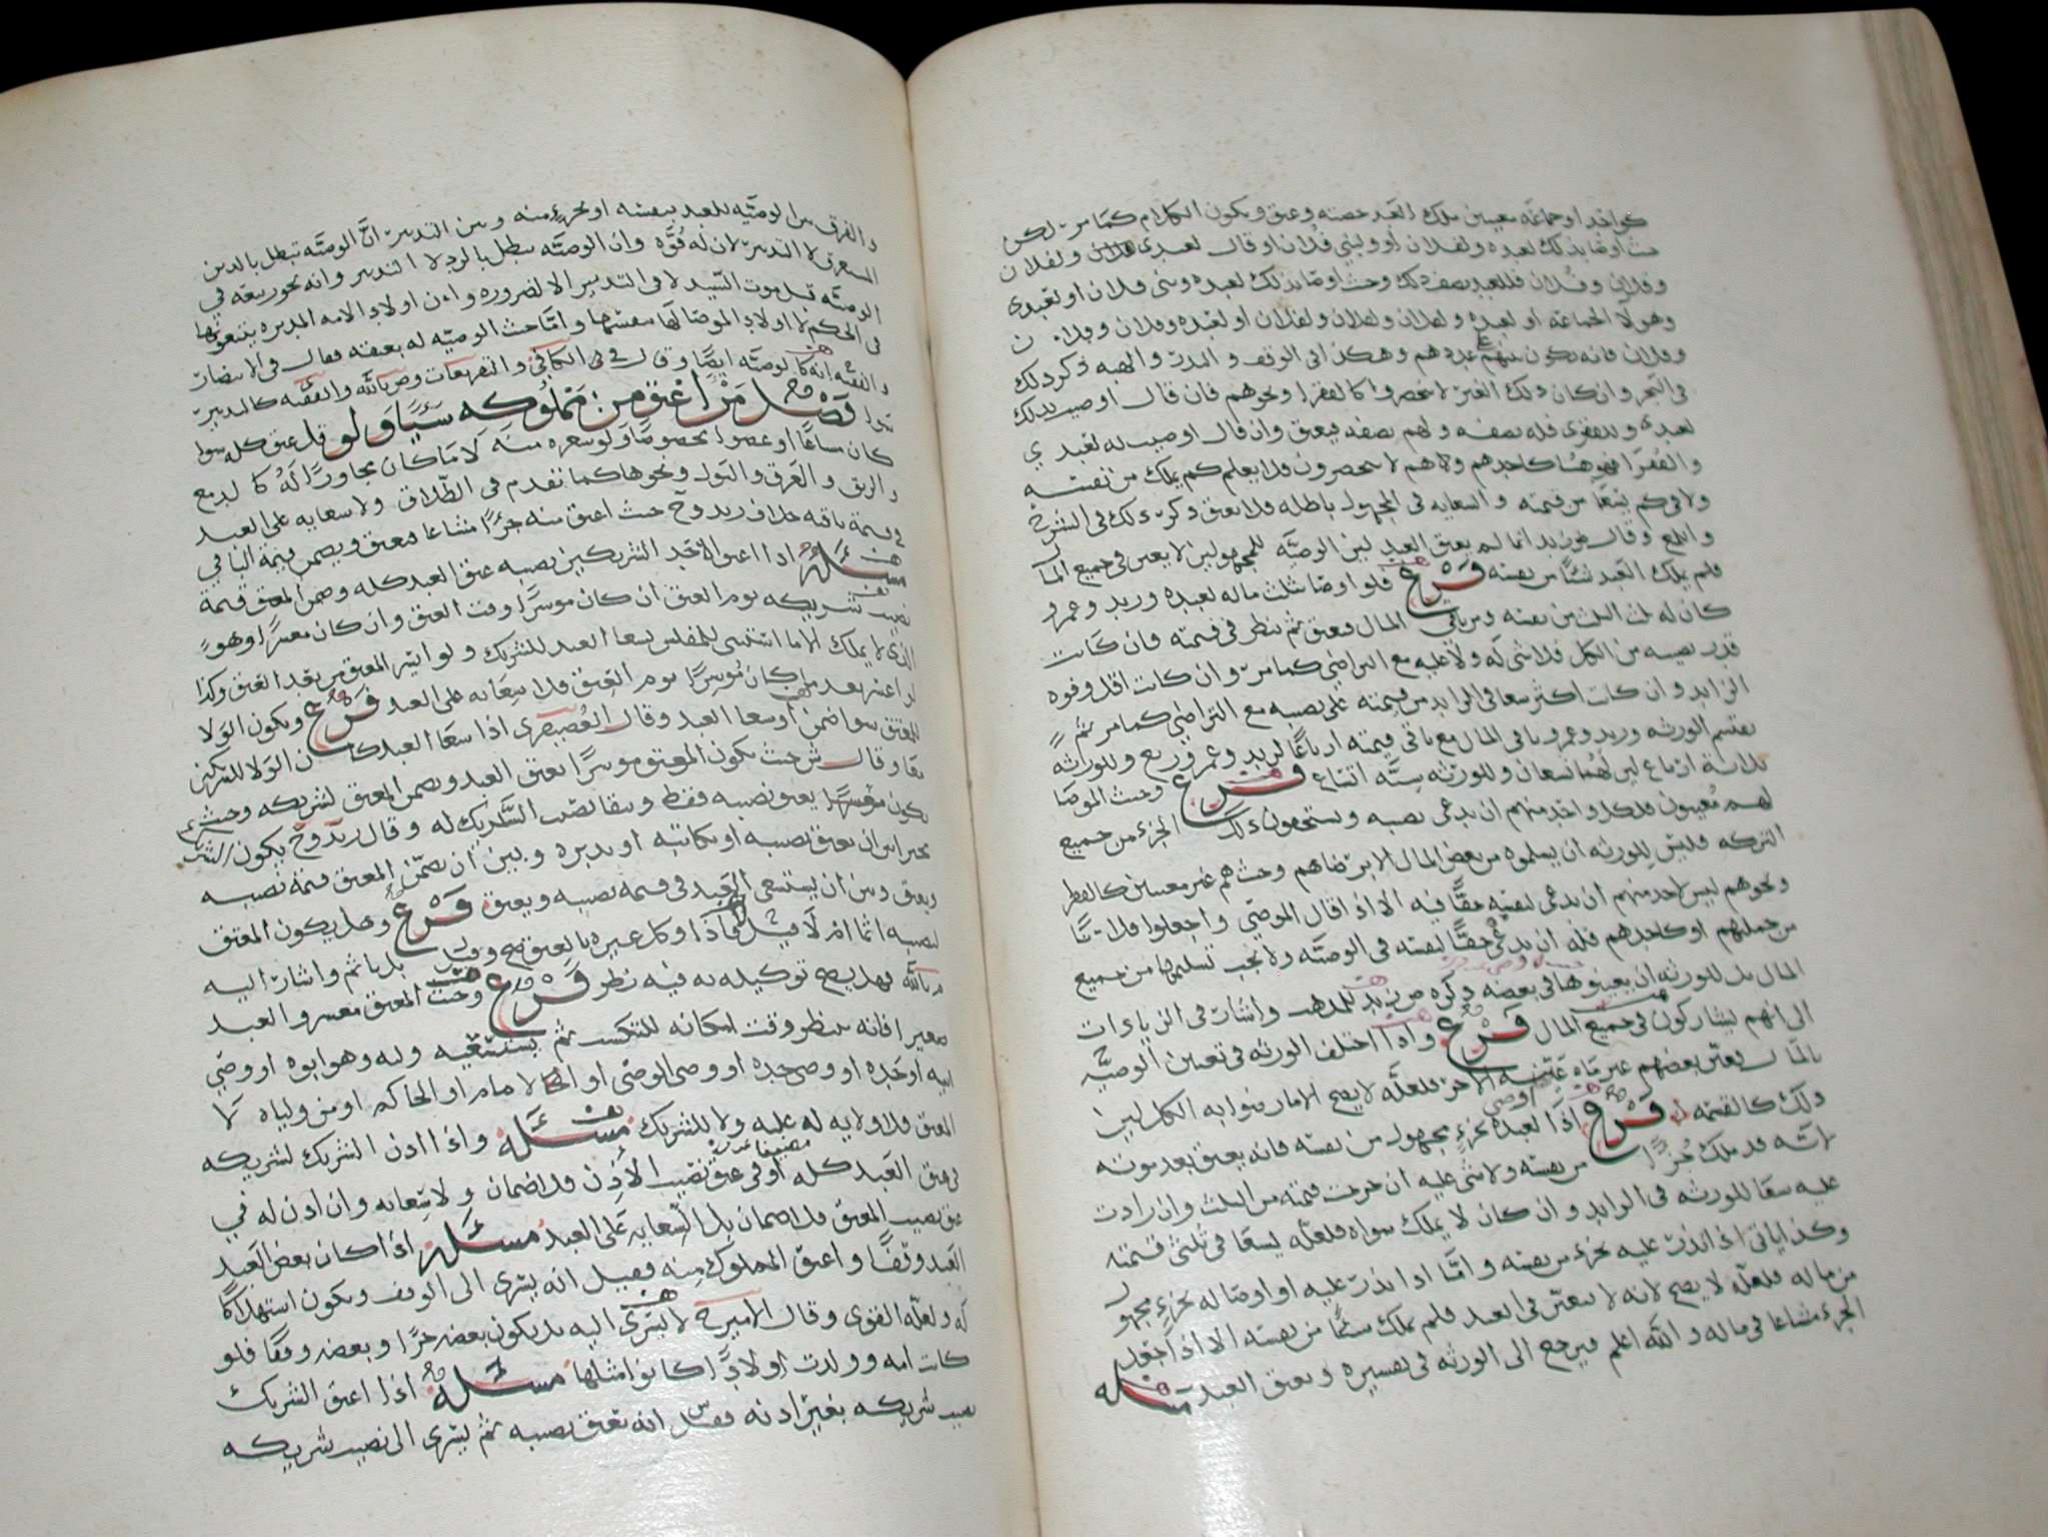 كواحد او جماعة معينين ملك العبد حصته وعتق ويكون الكلام كما مر لكن
حيث اوصا بذلك لعبده ولفلان او قال لعبدي ولفلان
وفلان وفلان فللعبد نصف ذلك وحيث اوصا بذلك لعبده وبني فلان او لعبدي
وهولا الجماعة او لعبده ولفلان ولفلان ولفلان او لعبده وفلان وفلان
وفلان فانه يكون بينهم على عددهم وهكذا في الوقف و النذر والهبه ذكر ذلك
في البحر وان كان ذلك الغير لا ينحصروا كالفقرا ونحوهم فان قال اوصيت بذلك
لعبدي وللفقرى فله نصفه ولهم نصفه فيعتق وان قال اوصيت به لعبدي
والفقرا فهو هنا كاحدهم ولاهم لا ينحصرون فلا يعلم كم يملك من نفسه
ولا في كم يسعا من قيمته والسعايه في المجهول باطله فلا يعتق ذكر ذلك في الشرح
واللمع وقال انما لم يعتق العبد لان الوصيه للمجهولين لا يعين في جميع المال
فلم يملك العبد شيئا من نفسه فرع فلو اوصا بثلث ماله لعبده وزيد وعمرو
كان له ثلث الثلث من نفسه ومن باقي المال فيعتق ثم ينظر في قيمته فان كانت
قدر نصيبه من الكل فلا شي له ولا عليه مع التراضي كما مر وان كانت اقل وفوه
الزايد وان كانت اكثر سعا في الزايد من قيمته على نصيبه مع التراضي كما مر ثم
يقتسم الورثه وزيد وعمرو باقي المال مع باقي قيمته ارباعا لزيد وعمرو ربع وللورثه
ثلاثة ارباع لهما تسعان وللورثه ستة اتساع فرع وحيث الموصا
لهم معينون فلكل واحد منهم ان يدعي نصيبه ويستحقون ذلك الجزء من جميع
التركه فليس للورثه ان يسلموه من بعض المال الا برضاهم وحيث هم غير معينين كالفقرا
ونحوهم ليس لاحد منهم ان يدعي لنفسه حقا فيه الا اذا قال الموصي واجعلوا فلانا
من جملتهم او كاحدهم فله ان يدعي حقا لنفسه في الوصيه ولا يجب تسليمها من جميع
المال بل للورثه ان يعينوها في بعضه ذكره للمذهب واشار في الزيادات
الى انهم يشاركون في جميع المال فرع واذا اختلف الورثه في تعيين الوصيه
بالمال فعين بعضهم غير ما عينه الاخر فلعله لا يصح الا ما رضوا به الكل لان
ذلك كالقسمه فرع اذا اوصى لعبده بجزء مجهول من نفسه فانه يعتق بعد موته
لانه قد ملك جزا من نفسه ولا شي عليه ان خرجت قيمته من الثلث وان زادت
عليه سعا للورثه في الزايد وان كان لا يملك سواه فلعله يسعا في ثلثي قيمته
وكذا ياتي اذا نذر عليه بجزء من نفسه واما اذا نذر عليه او اوصا له بجزء مجهول
من ماله فلعله لا يصح لانه لا يتعين في العبد فلم يملك شيئا من نفسه الا اذا جعل
الجزء مشاعا في ماله والله اعلم فيرجع الى الورثه في تفسيره ويعتق العبد مسئله
والفرق بين الوصيه للعبد بنفسه او بجزء منه وبين التدبير ان الوصيه تبطل بالدين
المستغرق لا التدبير لان له قوه وان الوصيه تبطل بالرد لا التدبير وانه يجوز بيعه في
الوصيه قبل موت السيد لا في التدبير الا لضروره وان اولاد الامه المدبره يتبعونها
في الحكم لا اولاد الموصا لها بنفسها واما حيث الوصيه له بعتقه فقال في الانتصار
والفقيه انه كالوصيه ايضا وقال في الكافي والتفريعات وض بالله والفقيه كالتدبير
فصل من اعتق من مملوكه شيئا ولو قل عتق كله سوا
كان مشاعا او عضوا مخصوصا ولو شعره منه لا ما كان مجاورا له كالدمع
والريق والعرق والبول ونحوها كما تقدم في الطلاق ولا سعايه على العبد
في قيمة باقيه خلاف زيد وح حيث اعتق منه جزا مشاعا فيعتق ويضمن قيمة الباقي
مسئله اذا اعتق احد الشريكين نصيبه عتق العبد كله وضمن المعتق قيمة
نصيب شريكه يوم العتق ان كان موسرا وقت العتق وان كان معسرا وهو
الذي لا يملك الا ما استثني للمفلس سعا العبد للشريك ولو ايسر المعتق من بعد العتق وكذا
لو اعسر بعد ما كان موسرا يوم العتق فلا سعايه على العبد فرع ويكون الولا
للمعتق سوا ضمن او سعا العبد وقال العصيفري اذا سعا العبد كان الولا للشريكين
معا وقال ش حيث يكون المعتق موسرا يعتق العبد ويضمن المعتق لشريكه وحيث
يكون معسرا يعتق نصيبه فقط ويبقا نصيب الشريك له وقال زيد وح يكون الشريك
مخير بين ان يعتق نصيبه او يكاتبه او يدبره وبين ان يضمن المعتق قيمة نصيبه
ويعتق وبين ان يستسعي العبد في قيمه نصيبه ويعتق فرع وهل يكون المعتق
لنصيبه اثما ام لا قيل واذا وكل غيره بالعتق صح وقيل بل ياثم واشار اليه
م بالله فهل يصح توكيله به فيه نظر فرع وحيث المعتق معسر والعبد
صغيرا فانه ينظر وقت امكانه للتكسب ثم يستسعيه وليه وهو ابوه او وصي
ابيه او جده او وصي جده او وصي الوصي او الامام او الحاكم او من ولياه لا
المعتق فلا ولايه له عليه ولا للشريك مسئله واذا اذن الشريك لشريكه
في عتق العبد كله او في عتق نصيب الآذن فلا ضمان ولا سعايه وان اذن له في
عتق نصيب المعتق فلا ضمان بل السعايه على العبد مسئله اذا كان بعض العبد
العبد وقفا واعتق المملوك منه فقيل انه يسري الى الوقف ويكون استهلاكا
له ولعله القوي وقال الامير ح لا يسري اليه بل يكون بعضه حرا وبعضه وقفا فلو
كانت امه وولدت اولادا كانوا مثلها مسئله اذا اعتق الشريك
نصيب شريكه بغير اذنه فقيل انه يعتق نصيبه ثم يسري الى نصيب شريكه